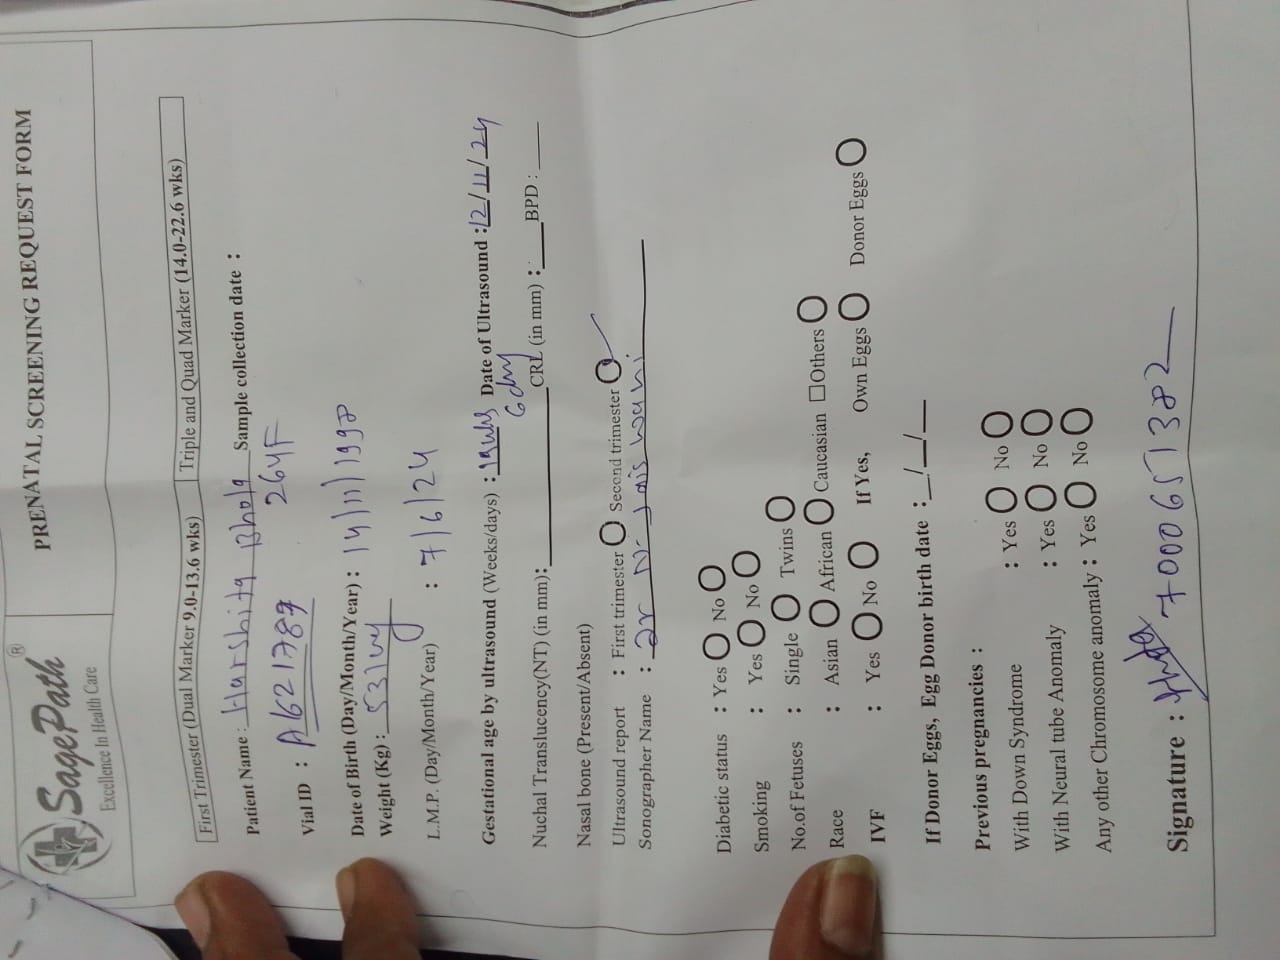 SagePath®
Excellence In Health Care
PRENATAL SCREENING REQUEST FORM
First Trimester (Dual Marker 9.0-13.6 wks) Triple and Quad Marker (14.0-22.6 wks)
Patient Name : Harshita Bhola Sample collection date :
Vial ID : A621789 26YF
Date of Birth (Day/Month/Year) : 14/11/1998
Weight (Kg) : 53
L.M.P. (Day/Month/Year) : 7/6/24
Gestational age by ultrasound (Weeks/days) : 6 day Date of Ultrasound : 12/11/24
Nuchal Translucency(NT) (in mm): CRL (in mm) : BPD :
Nasal bone (Present/Absent)
Ultrasound report : First trimester Second trimester
Sonographer Name :
Diabetic status : Yes No
Smoking : Yes No
No.of Fetuses : Single Twins
Race : Asian African Caucasian Others
IVF : Yes No If Yes, Own Eggs Donor Eggs
If Donor Eggs, Egg Donor birth date : / /
Previous pregnancies :
With Down Syndrome : Yes No
With Neural tube Anomaly : Yes No
Any other Chromosome anomaly : Yes No
Signature : 7000651382